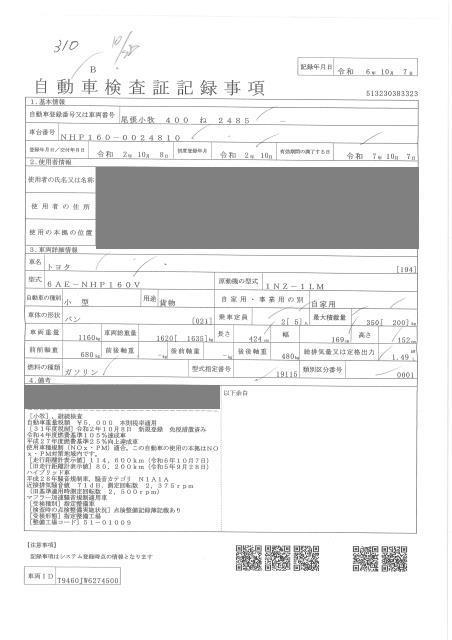 310
10/28
B
記録年月日 令和 6年 10月 7日
自動車検査証記録事項
513230383323
1.基本情報
自動車登録番号又は車両番号 尾張小牧 400 ね 2485 ー
車台番号 NHP160-0024810
登録年月日/交付年月日 令和 2年 10月 8日 初度登録年月 令和 2年 10月 有効期間の満了する日 令和 7年 10月 7日
2.使用者情報
使用者の氏名又は名称
使用者の住所
使用の本拠の位置
3.車両詳細情報
車名 トヨタ [194]
型式 6AE-NHP160V 原動機の型式 1NZ-1LM
自動車の種別 小型 用途 貨物 自家用・事業用の別 自家用
車体の形状 バン [021] 乗車定員 2[ 5]人 最大積載量 350[ 200]kg
車両重量 1160kg 車両総重量 1620[ 1635]kg 長さ 424cm 幅 169cm 高さ 152cm
前前軸重 680kg 前後軸重 -kg 後前軸重 -kg 後後軸重 480kg 総排気量又は定格出力 1.49L
燃料の種類 ガソリン 型式指定番号 19115 類別区分番号 0001
4.備考
以下余白
[小牧],継続検査
自動車重量税額 ¥5,000 本則税率適用
[31年度税制]令和2年10月8日 新規登録 免税措置済み
令和4年度燃費基準105%達成車
平成27年度燃費基準25%向上達成車
使用車種規制(NOx・PM)適合,この自動車の使用の本拠はNO
x・PM対策地域内です。
[走行距離計表示値]114,600km(令和6年10月7日)
[旧走行距離計表示値]80,200km(令和5年9月28日)
ハイブリッド車
平成28年騒音規制車,騒音カテゴリ N1A1A
近接排気騒音値 71dB,測定回転数 2,375rpm
(旧基準適用時測定回転数 2,500rpm)
マフラー加速騒音規制適用車
[受検種別]指定整備車
[検査時の点検整備実施状況]点検整備記録簿記載あり
[受検形態]指定整備工場
[整備工場コード]51-01009
[注意事項]
記録事項はシステム登録時点の情報となります
車両ID T9460JW6274500